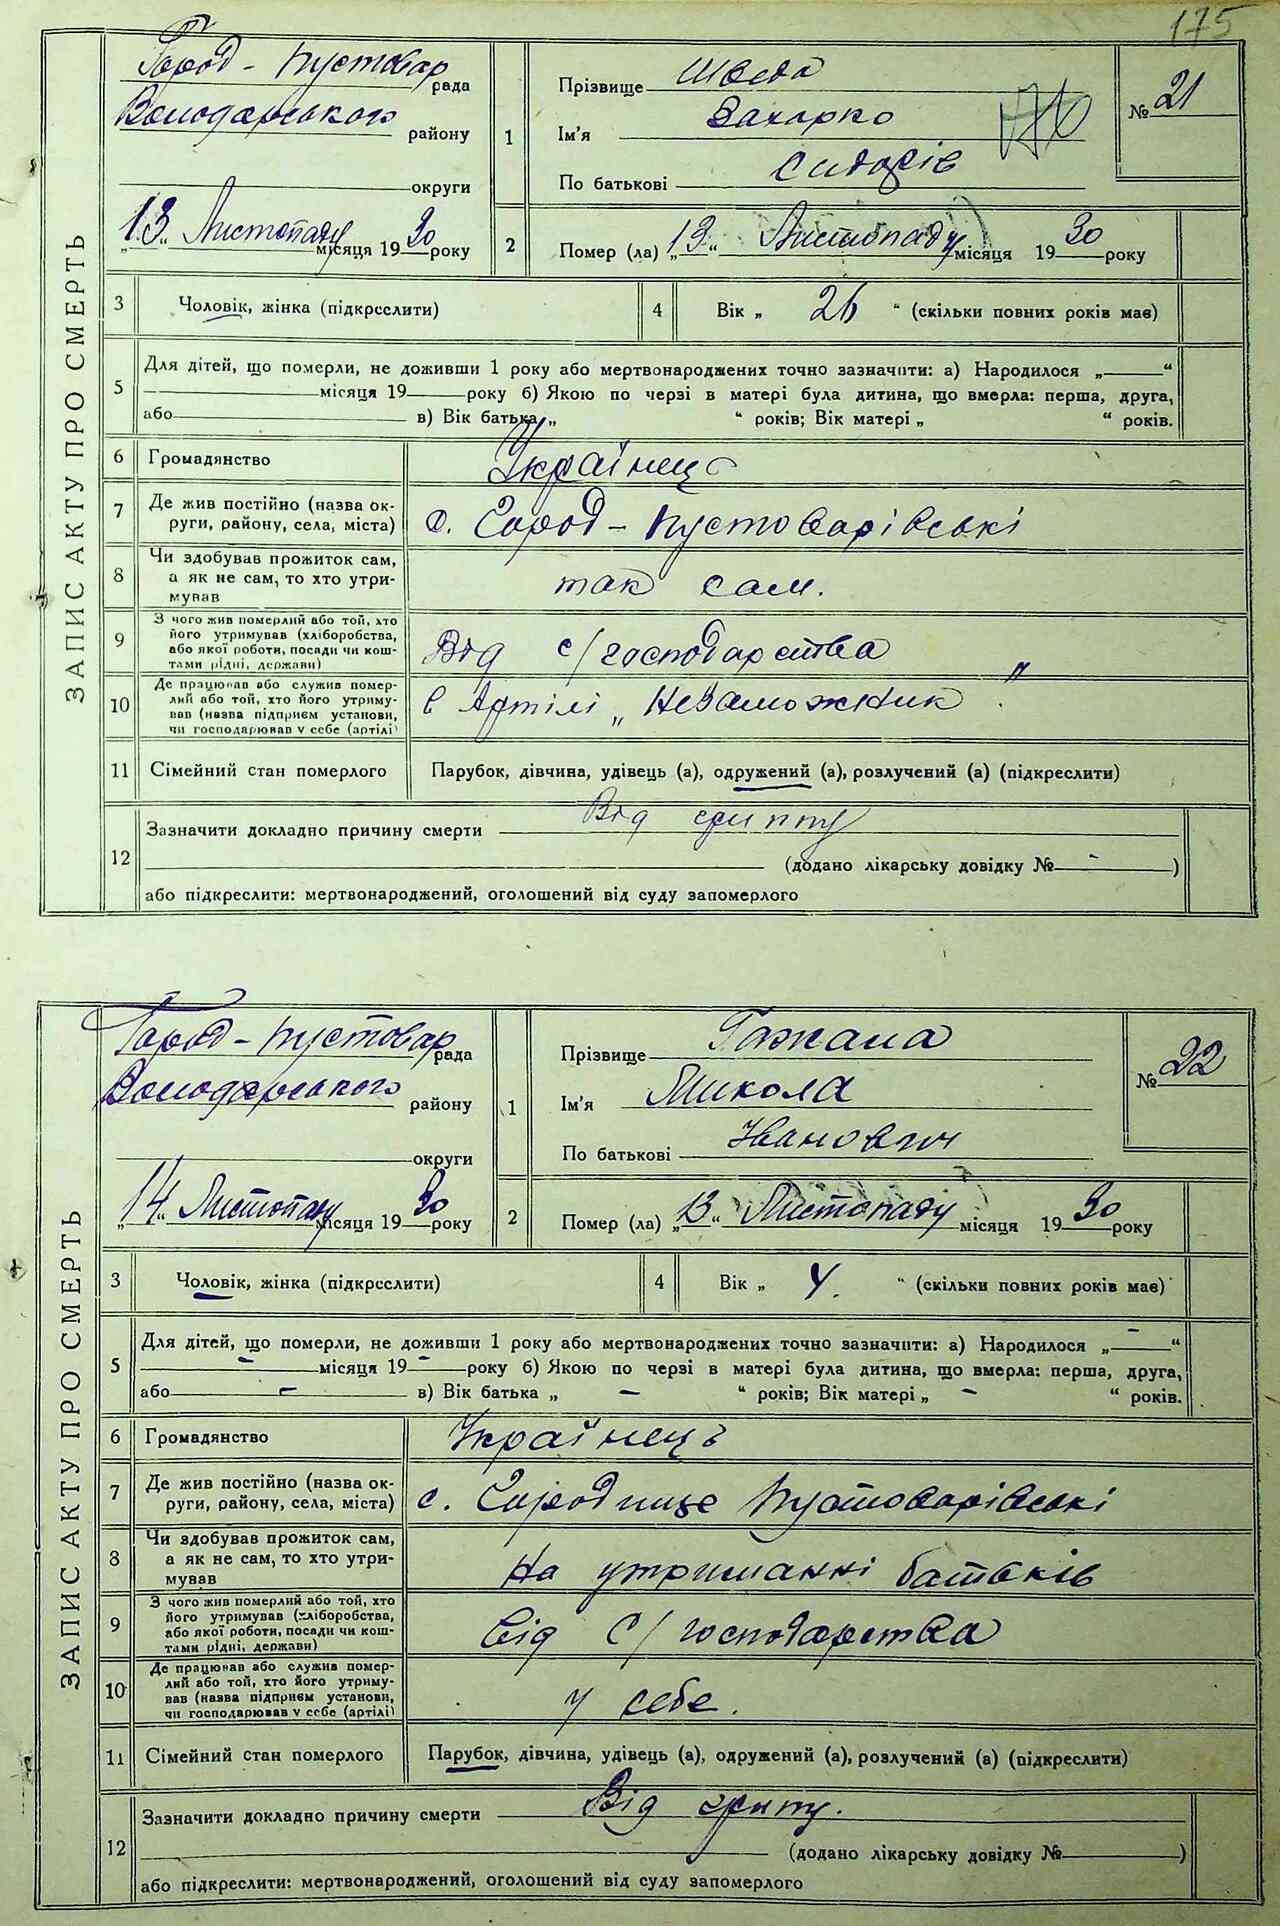 175
ЗАПИС АКТУ ПРО СМЕРТЬ
Город-Пустовар рада
Володарського району
округи
„13“ Листопаду місяця 1930 року
1
Прізвище Шведа
Ім'я Захарко
По батькові Сидорів
№ 21
2 Помер (ла) „13“ Листопаду місяця 1930 року
3 Чоловік, жінка (підкреслити)
4 Вік „ 26 “ (скільки повних років має)
5 Для дітей, що померли, не доживши 1 року або мертвонароджених точно зазначити: а) Народилося „ “
місяця 19 року б) Якою по черзі в матері була дитина, що вмерла: перша, друга,
або в) Вік батька „ “ років; Вік матері „ “ років.
6 Громадянство Українець
7 Де жив постійно (назва округи, району, села, міста) с. Город-Пустоварівські
8 Чи здобував прожиток сам, а як не сам, то хто утримував так сам.
9 З чого жив померлий або той, хто його утримував (хліборобства, або якої роботи, посади чи коштами рідні, держави) Від с/господарства
10 Де працював або служив померлий або той, хто його утримував (назва підприєм установи, чи господарював у себе (артілі) в Артілі „Незаможник“.
11 Сімейний стан померлого Парубок, дівчина, удівець (а), одружений (а), розлучений (а) (підкреслити)
12 Зазначити докладно причину смерти Від гриппу
(додано лікарську довідку № - )
або підкреслити: мертвонароджений, оголошений від суду запомерлого
ЗАПИС АКТУ ПРО СМЕРТЬ
Город-Пустовар рада
Володарського району
округи
„14“ Листопаду місяця 1930 року
1
Прізвище Гажала
Ім'я Микола
По батькові Іванович
№ 22
2 Помер (ла) „13“ Листопаду місяця 1930 року
3 Чоловік, жінка (підкреслити)
4 Вік „ 4. “ (скільки повних років має)
5 Для дітей, що померли, не доживши 1 року або мертвонароджених точно зазначити: а) Народилося „ - “
- місяця 19 - року б) Якою по черзі в матері була дитина, що вмерла: перша, друга,
або - в) Вік батька „ - “ років; Вік матері „ - “ років.
6 Громадянство Українець
7 Де жив постійно (назва округи, району, села, міста) с. Городище Пустоварівські
8 Чи здобував прожиток сам, а як не сам, то хто утримував На утриманні батьків
9 З чого жив померлий або той, хто його утримував (хліборобства, або якої роботи, посади чи коштами рідні, держави) Від С/господарства
10 Де працював або служив померлий або той, хто його утримував (назва підприєм установи, чи господарював у себе (артілі) у себе.
11 Сімейний стан померлого Парубок, дівчина, удівець (а), одружений (а), розлучений (а) (підкреслити)
12 Зазначити докладно причину смерти Від грипу.
(додано лікарську довідку № )
або підкреслити: мертвонароджений, оголошений від суду запомерлого